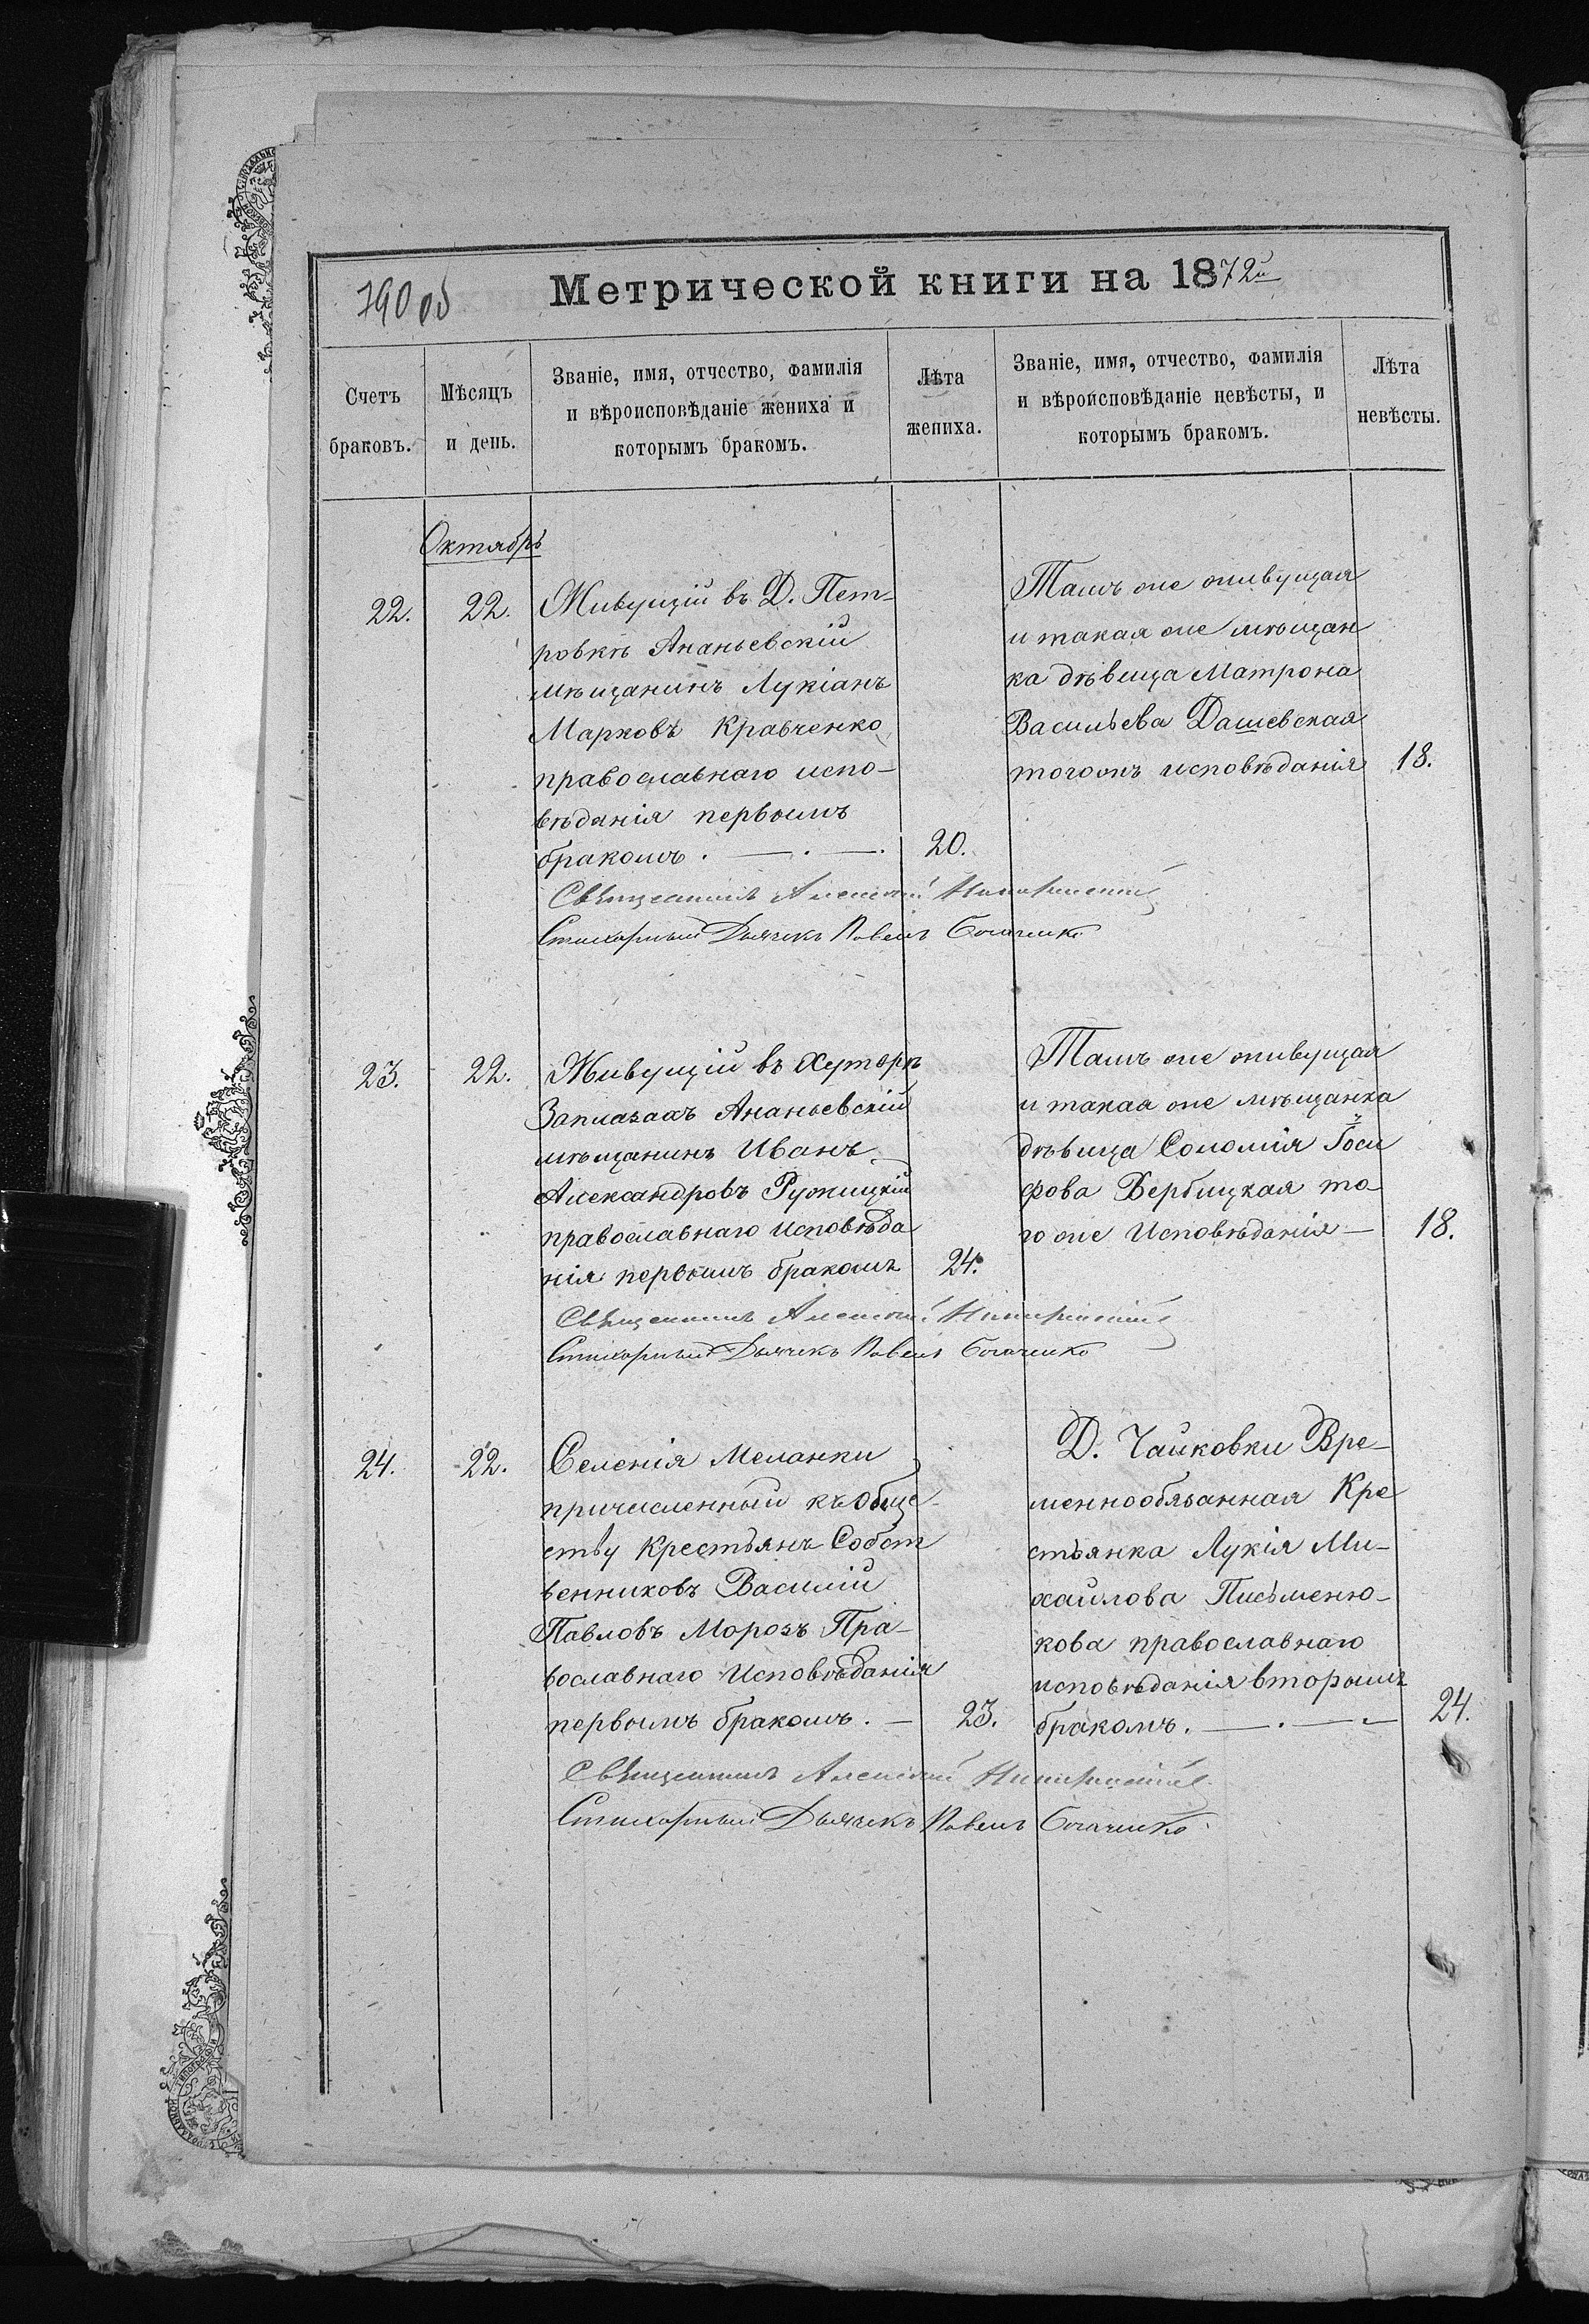 790 об
Метрической книги на 1872й
Счетъ браковъ.
Мѣсяцъ и день.
Званіе, имя, отчество, фамилія и вѣроисповѣданіе жениха и которымъ бракомъ.
Лѣта жениха.
Званіе, имя, отчество, фамилія и вѣроисповѣданіе невѣсты, и которымъ бракомъ.
Лѣта невѣсты.
Октябрь
22.
22.
Живущій въ Д. Пет-
ровкѣ Ананьевскій
мѣщанинъ Лукіанъ
Марковъ Кравченко
православнаго испо-
вѣданія первымъ
бракомъ. — . — .
20.
Тамъ же живущая
и такая же мѣщан
ка дѣвица Матрона
Васильева Дашевская
тогожъ исповѣданія
18.
Священникъ Алексій
Стихарный Дьячекъ Павелъ
23.
22.
Живущій въ Хуторѣ
Заплазахъ Ананьевскій
мѣщанинъ Иванъ
Александровъ Ружицкій
православнаго исповѣда
нія первымъ бракомъ
24.
Тамъ же живущая
и такая же мѣщанка
дѣвица Соломія Іоси
фова Вербицкая то
го же Исповѣданія —
18.
Священникъ Алексій
Стихарный Дьячекъ Павелъ
24.
22.
Селенія Меланки
причисленный къ Обще-
ству Крестьянъ Собст
венниковъ Василій
Павловъ Морозъ Пра-
вославнаго Исповѣданія
первымъ бракомъ. —
23.
Д. Чайковки Вре-
меннообязанная Кре
стьянка Лукія Ми-
хайлова Письменю-
кова православнаго
исповѣданія вторымъ
бракомъ. — . — —
24.
Священникъ Алексій
Стихарный Дьячекъ Павелъ